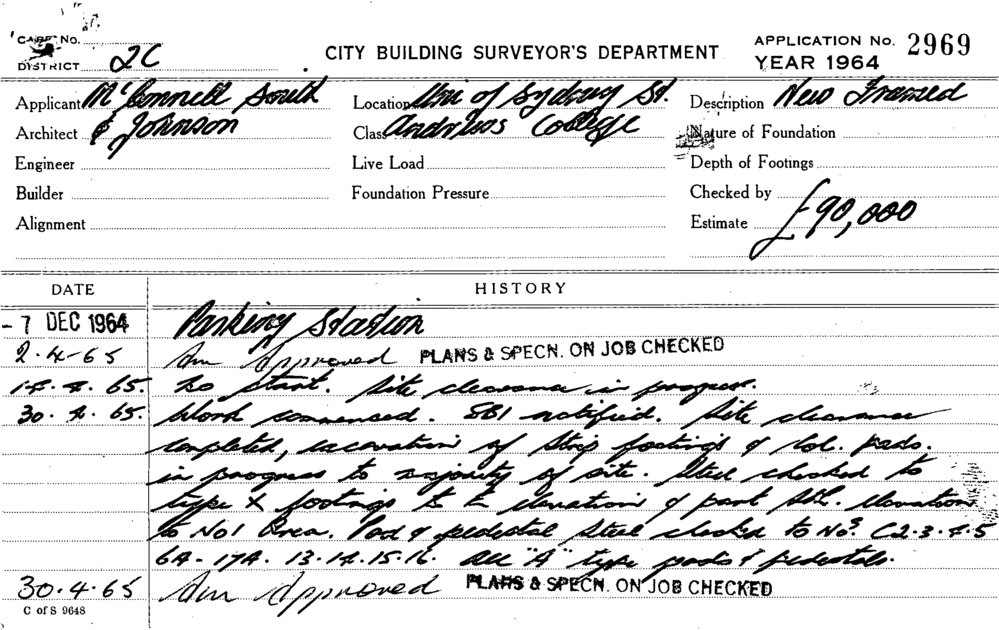 CARD No.
DISTRICT 2C
CITY BUILDING SURVEYOR'S DEPARTMENT
APPLICATION No. 2969
YEAR 1964
Applicant McConnell Smith
Architect & Johnson
Engineer
Builder
Alignment
Location Uni of Sydney St.
Class Andrews College
Live Load
Foundation Pressure
Description New Framed
Nature of Foundation
Depth of Footings
Checked by
Estimate £90,000
DATE HISTORY
- 7 DEC 1964 Parking Station
2.4-65 Am Approved PLANS & SPECN. ON JOB CHECKED
14.4.65. No start. Site clearance in progress.
30.4.65. Work commenced. SBI notified. Site clearance
completed, excavation of strip footings & col. pads.
in progress to majority of site. Steel checked to
type X footings to E elevation & part Sth. elevation
to No1 Area. Pad & pedestal steel checked to Nos. C2-3-4-5
6A-17A. 13.14.15.16. All "A" type pads & pedestals.
30.4.65 Am Approved PLANS & SPECN. ON JOB CHECKED
C of S 9648